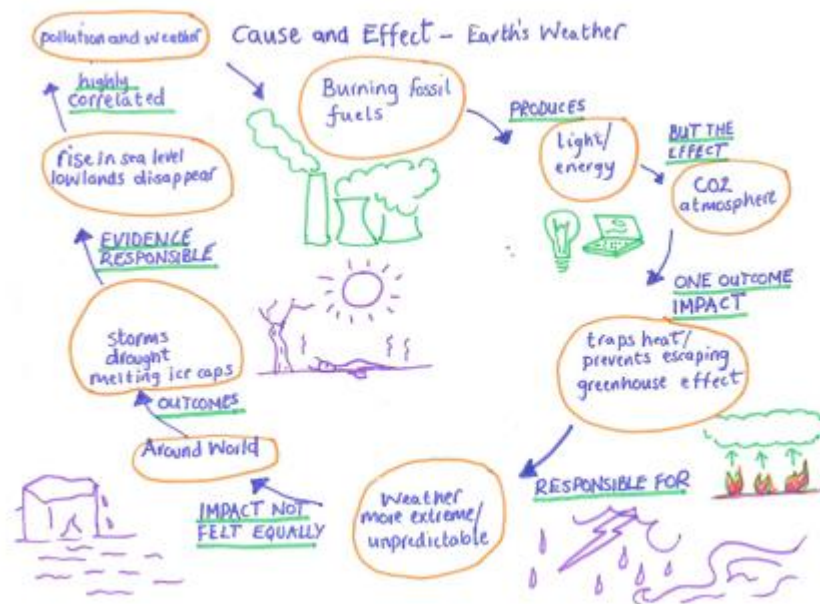 Cause and Effect – Earth's Weather
pollution and weather
Burning fossil
fuels
PRODUCES
light/
energy
BUT THE
EFFECT
CO2
atmosphere
ONE OUTCOME
IMPACT
traps heat/
prevents escaping
greenhouse effect
RESPONSIBLE FOR
Weather
more extreme/
unpredictable
IMPACT NOT
FELT EQUALLY
Around World
OUTCOMES
storms
drought
melting ice caps
EVIDENCE
RESPONSIBLE
rise in sea level
lowlands disappear
highly
correlated